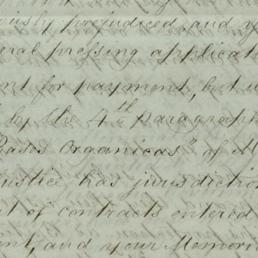 prejudiced, and
pressing applicat
for payment, but
by the 4th paragraph
Bases Organicas" of M
has jurisdiction
of contracts entered
and your Memori